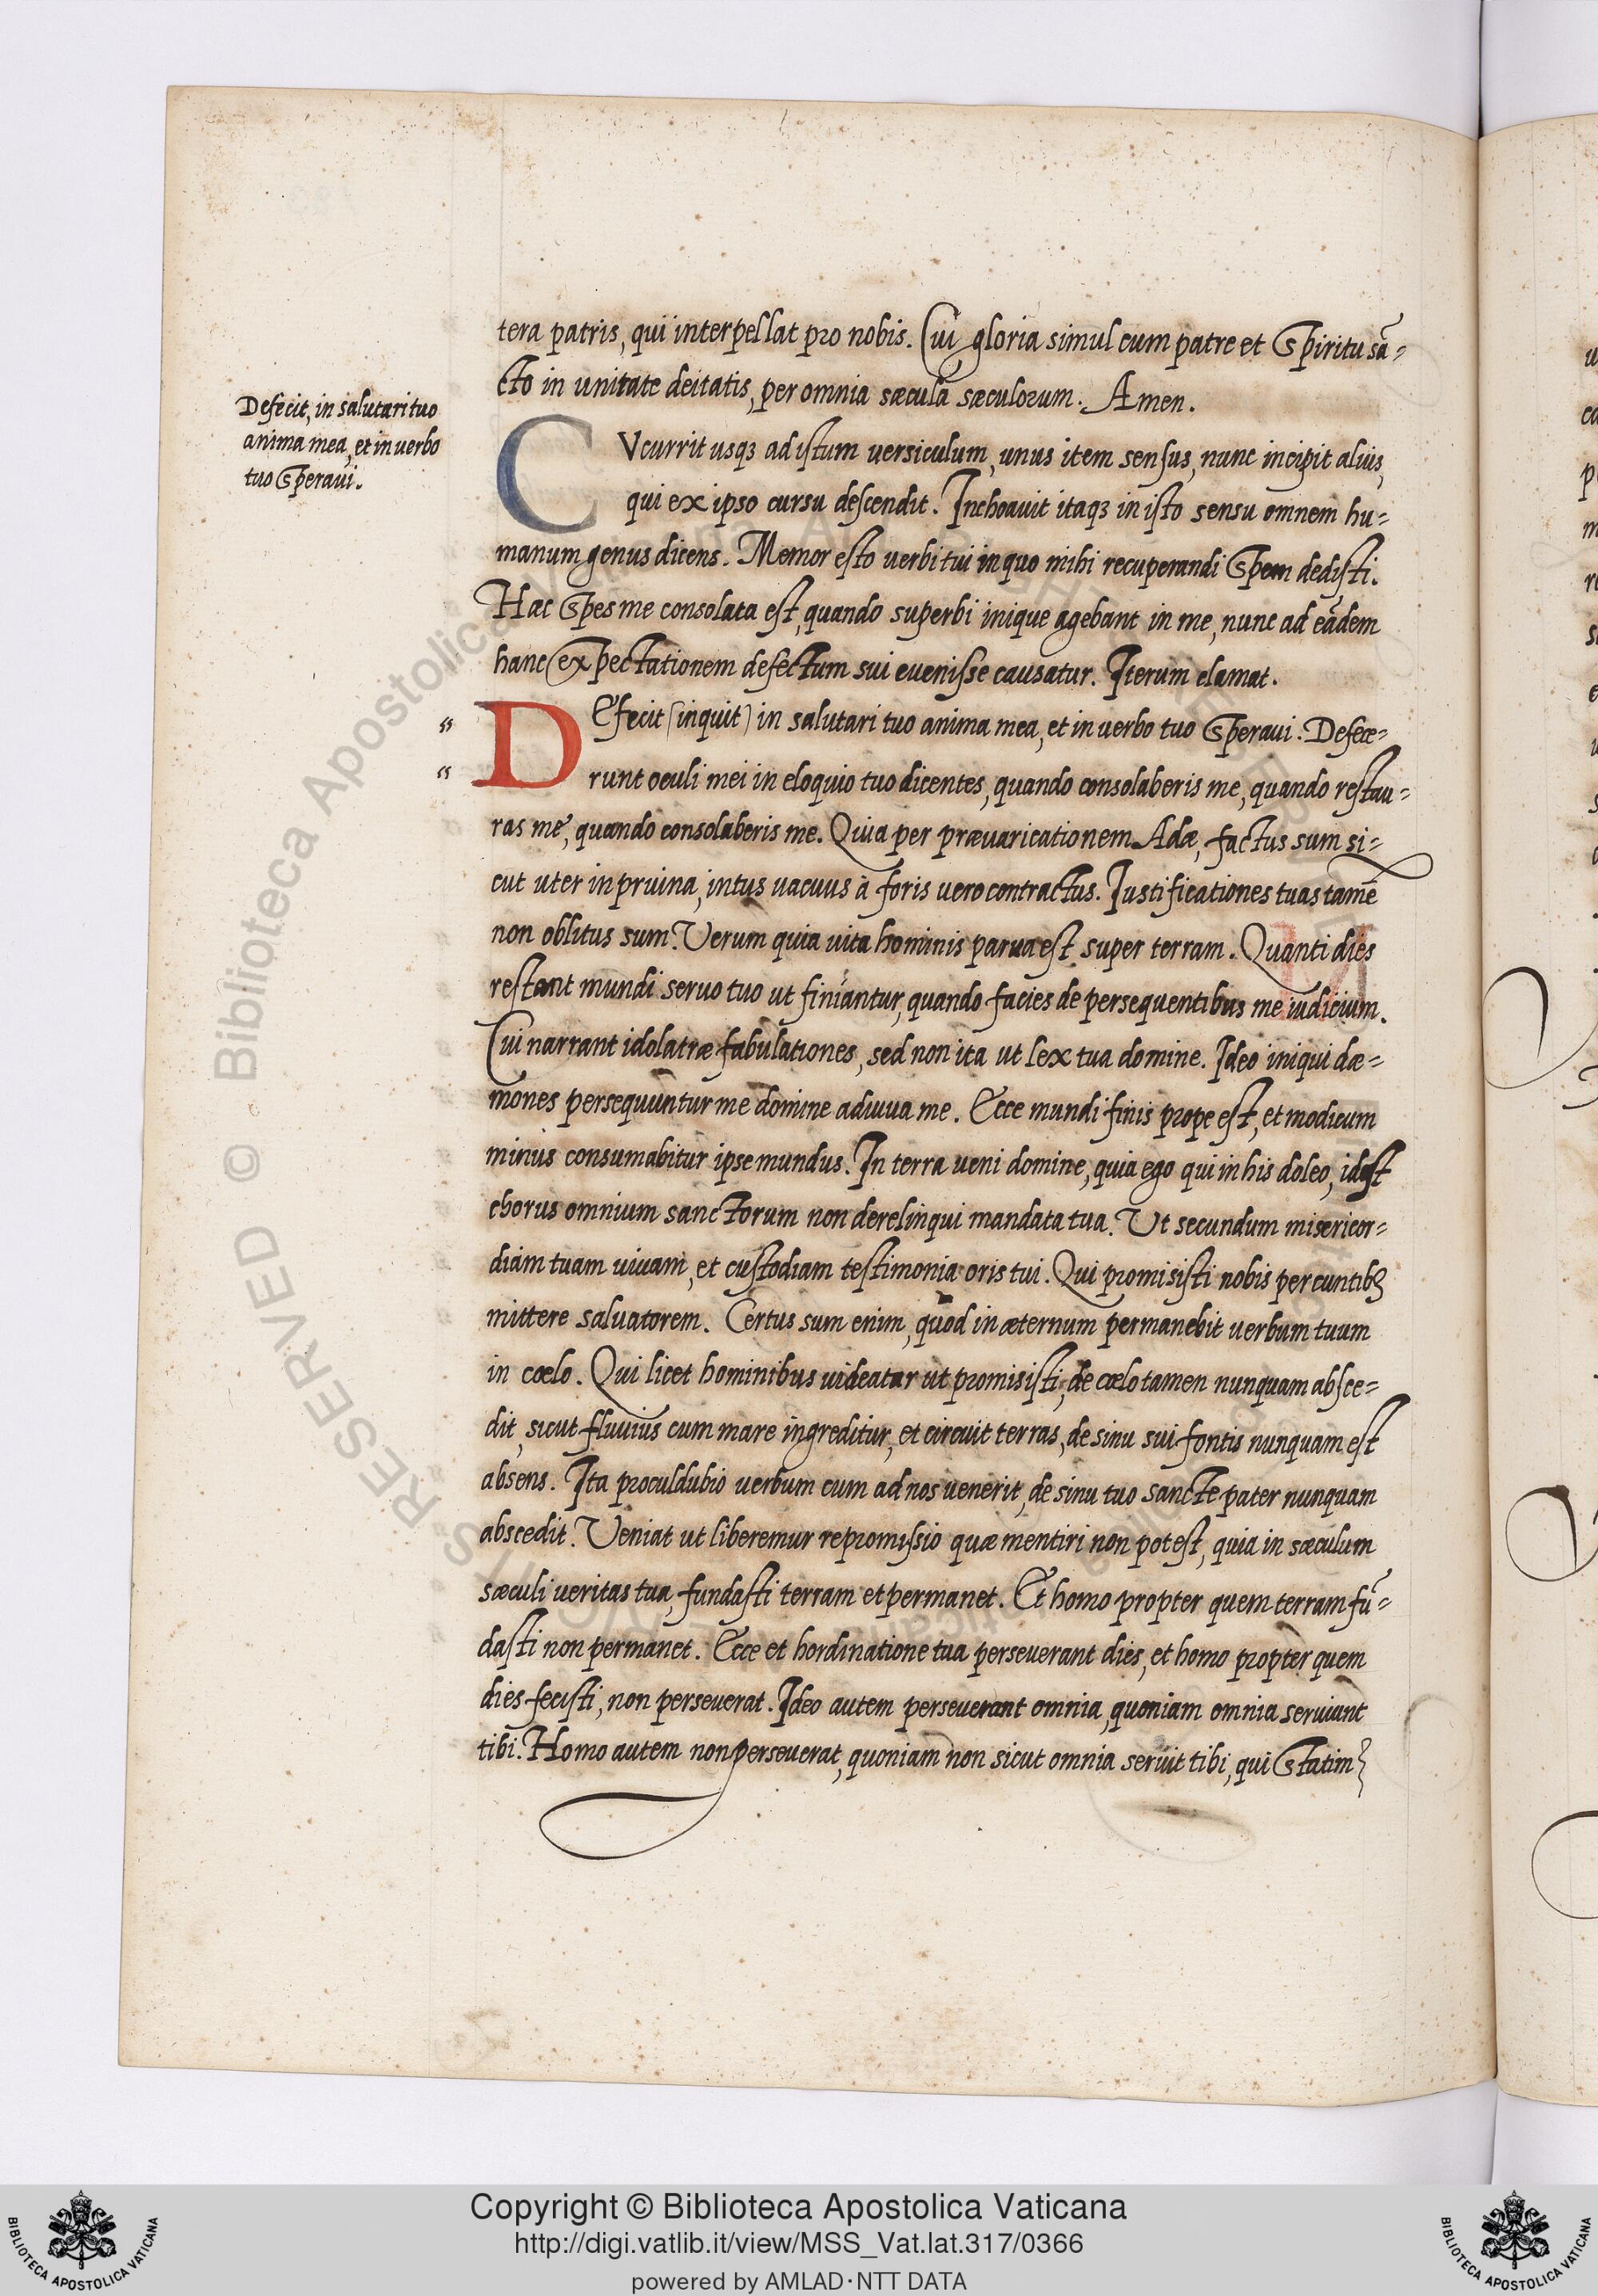 tera patris, qui interpellat pro nobis. Cui gloria simul cum patre et Spiritu sā-
cto in unitate deitatis, per omnia sæcula sæculorum. Amen.
Defecit, in salutari tuo
anima mea, et in verbo
tuo speraui.
CVcurrit usqȝ ad istum versiculum, unus item sensus, nunc incipit alius,
qui ex ipso cursu descendit. Inchoauit itaqȝ in isto sensu omnem hu-
manum genus dicens. Memor esto verbi tui in quo mihi recuperandi spem dedisti.
Hæc spes me consolata est, quando superbi inique agebant in me, nunc ad eādem
hanc expectationem defectum sui euenisse causatur. Iterum clamat.
DEfecit (inquit) in salutari tuo anima mea, et in uerbo tuo speraui. Defece-
runt oculi mei in eloquio tuo dicentes, quando consolaberis me, quando restau-
ras me, quando consolaberis me. Quia per præuaricationem Adæ, factus sum si-
cut uter in pruina, intus vacuus à foris uero contractus. Iustificationes tuas tamē
non oblitus sum. Verum quia uita hominis parua est super terram. Quanti dies
restant mundi seruo tuo ut finiantur, quando facies de persequentibus me iudicium.
Cui narrant idolatræ fabulationes, sed non ita ut lex tua domine. Ideo iniqui dæ-
mones persequuntur me domine adiuua me. Ecce mundi finis prope est, et modicum
minus consumabitur ipse mundus. In terra ueni domine, quia ego qui in his doleo, idest
chorus omnium sanctorum non derelinqui mandata tua. Ut secundum misericor-
diam tuam uiuam, et custodiam testimonia oris tui. Qui promisisti nobis percuntibȝ
mittere saluatorem. Certus sum enim, quod in æternum permanebit uerbum tuum
in cœlo. Qui licet hominibus uideatur ut promisisti, de cœlo tamen nunquam absce-
dit, sicut fluuius cum mare ingreditur, et circuit terras, de sinu sui fontis nunquam est
absens. Ita proculdubio uerbum cum ad nos uenerit, de sinu tuo sancte pater nunquam
abscedit. Veniat ut liberemur repromissio quæ mentiri non potest, quia in sæculum
sæculi ueritas tua, fundasti terram et permanet. Et homo propter quem terram fū-
dasti non permanet. Ecce et hordinatione tua perseuerant dies, et homo propter quem
dies fecisti, non perseuerat. Ideo autem perseuerant omnia, quoniam omnia seruiunt
tibi. Homo autem non perseuerat, quoniam non sicut omnia seruit tibi, qui statim
Copyright © Biblioteca Apostolica Vaticana
http://digi.vatlib.it/view/MSS_Vat.lat.317/0366
powered by AMLAD·NTT DATA
BIBLIOTECA APOSTOLICA VATICANA
BIBLIOTECA APOSTOLICA VATICANA